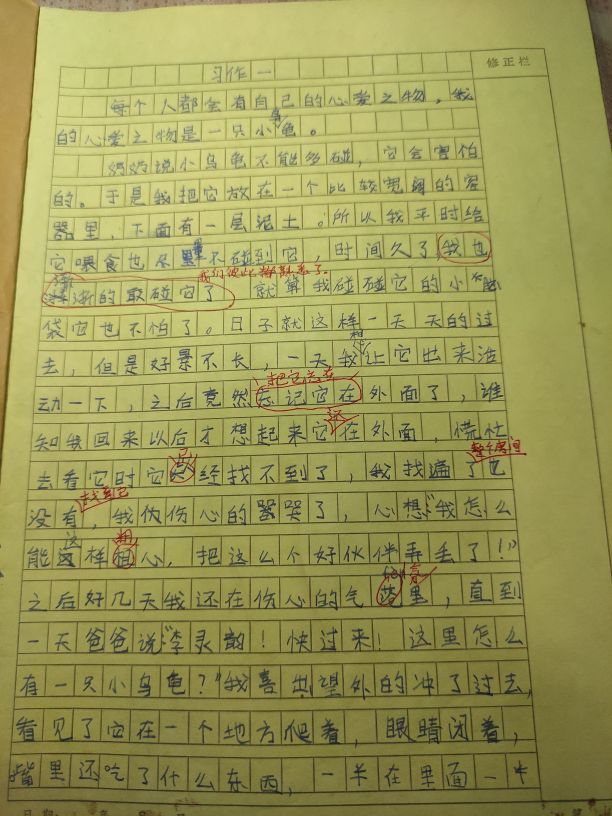 修正栏
习作一
每个人都会有自己的心爱之物，我
的心爱之物是一只小乌龟。
妈妈说小乌龟不能多碰，它会害怕
的。于是我把它放在一个比较宽阔的容
器里，下面有一层泥土。所以我平时给
它喂食也尽量不碰到它，时间久了我也
我们彼此都熟悉了。
渐渐的敢碰它了 就算我碰碰它的小脑
袋它也不怕了。日子就这样一天天的过
去，但是好景不长，一天我想让它出来活
把它忘在
动一下，之后竟然忘记它在外面了，谁
知我回来以后才想起来它还在外面，慌忙
去看它时它已经找不到了，我找遍了也
整个房间
找到它
没有，我伤伤心的嚣哭了，心想“我怎么
能这样粗心，把这么个好伙伴弄丢了！”
之后好几天我还在伤心的气氛里，直到
一天爸爸说“李灵韵！快过来！这里怎么
有一只小乌龟？”我喜出望外的冲了过去，
看见了它在一个地方爬着，眼睛闭着，
嘴里还吃了什么东西，一半在里面一